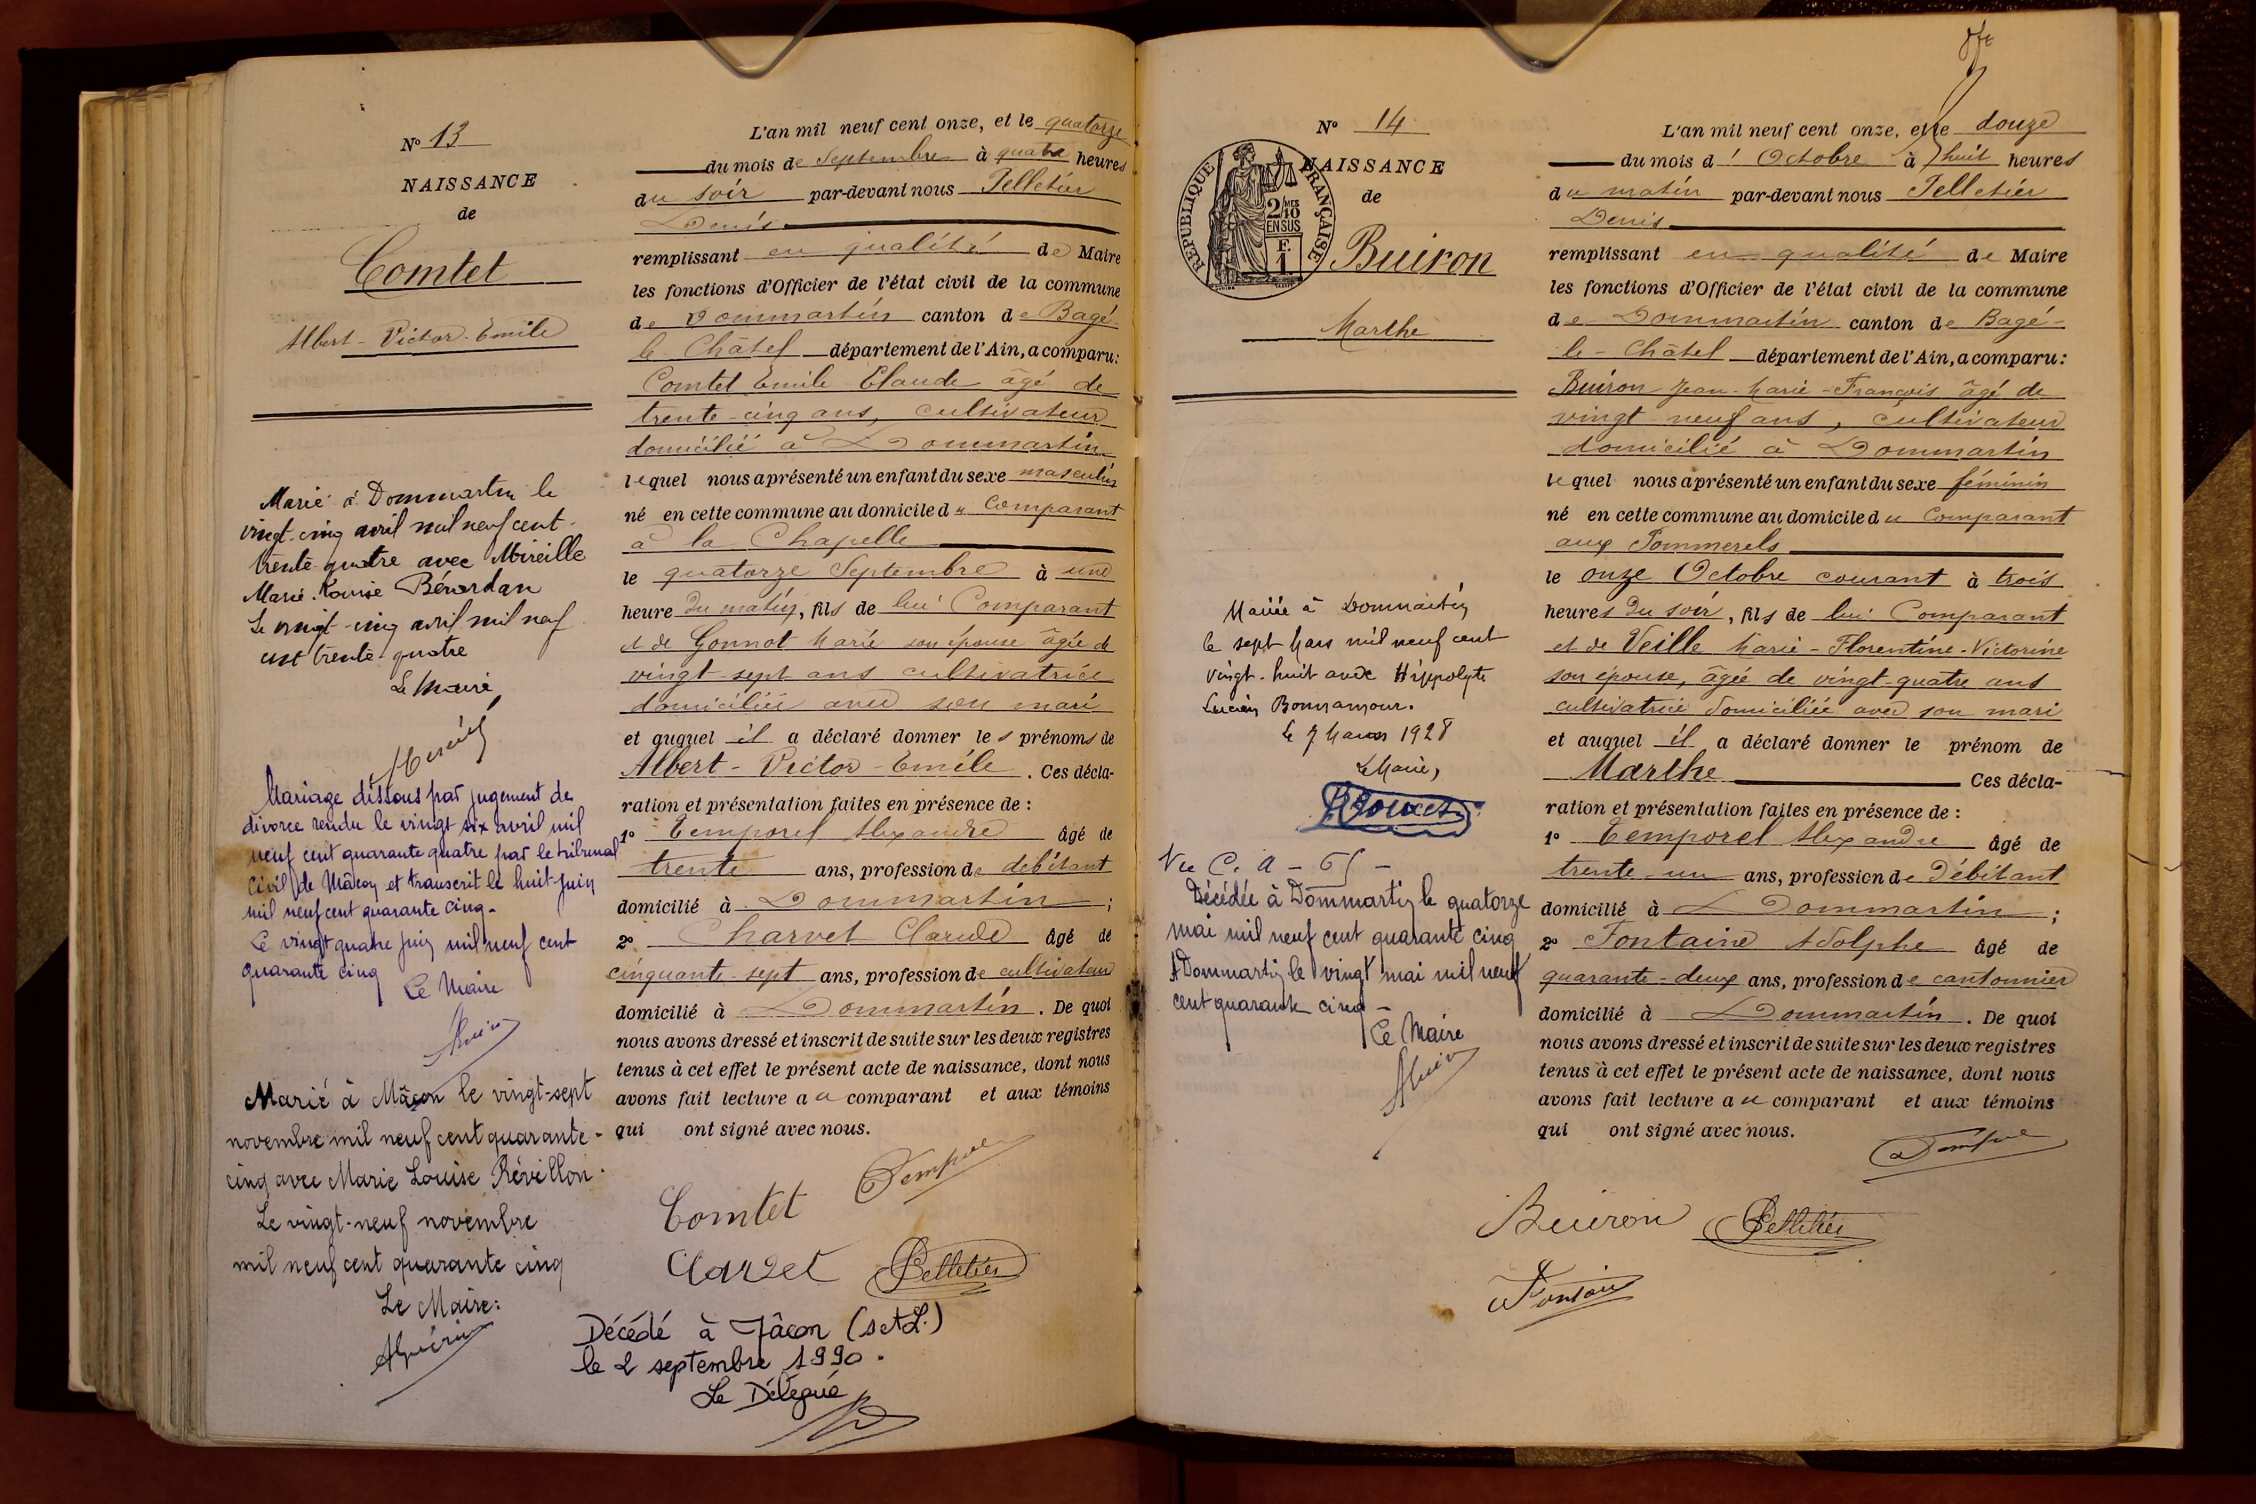 N° 13
NAISSANCE
de
Comtet
Albert - Victor - Emile
Marié à Dommartin le
vingt-cinq avril mil neuf cent
trente-quatre avec Mireille
Marie-Louise Bérardan
Le vingt-cinq avril mil neuf
cent trente-quatre
Le Maire
Mariage dissous par jugement de
divorce rendu le vingt six avril mil
neuf cent quarante quatre par le tribunal
civil de Mâcon et transcrit le huit juin
mil neuf cent quarante cinq-
Le vingt quatre juin mil neuf cent
quarante cinq
Le Maire
Marié à Mâcon le vingt-sept
novembre mil neuf cent quarante-
cinq avec Marie Louise Révillon.
Le vingt-neuf novembre
mil neuf cent quarante cinq
Le Maire:
L'an mil neuf cent onze, et le quatorze
du mois de Septembre à quatre heures
du soir par-devant nous Pelletier
Denis
remplissant en qualité de Maire
les fonctions d'Officier de l'état civil de la commune
de Dommartin canton de Bagé-
le Châtel département de l'Ain, a comparu:
Comtet Emile Claude âgé de
trente-cinq ans, cultivateur
domicilié à Dommartin
lequel nous a présenté un enfant du sexe masculin
né en cette commune au domicile du Comparant
à la Chapelle
le quatorze Septembre à une
heure du matin, fils de lui Comparant
et de Gonnot Marie son épouse âgée de
vingt-sept ans cultivatrice
domiciliée avec son mari
et auquel il a déclaré donner les prénoms de
Albert - Victor - Emile. Ces décla-
ration et présentation faites en présence de:
1° Temporel Alexandre âgé de
trente ans, profession de débitant
domicilié à Dommartin;
2° Charvet Claude âgé de
cinquante-sept ans, profession de cultivateur
domicilié à Dommartin. De quoi
nous avons dressé et inscrit de suite sur les deux registres
tenus à cet effet le présent acte de naissance, dont nous
avons fait lecture au comparant et aux témoins
qui ont signé avec nous.
Comtet
Pelletier
Décédé à Mâcon (S et L.)
le 2 septembre 1990.
Le Délégué
N° 14
NAISSANCE
de
RÉPUBLIQUE FRANÇAISE
2/10 MES
EN SUS
F.
1
Buiron
Marthe
Mariée à Dommartin
le sept Mars mil neuf cent
vingt-huit avec Hippolyte
Lucien Bonnamour.
le 7 Mars 1928
Le Maire,
Décédée à Dommartin le quatorze
mai mil neuf cent quarante cinq
A Dommartin le vingt mai mil neuf
cent quarante cinq -
Le Maire
L'an mil neuf cent onze, et le douze
du mois d'Octobre à huit heures
du matin par-devant nous Pelletier
Denis
remplissant en qualité de Maire
les fonctions d'Officier de l'état civil de la commune
de Dommartin canton de Bagé-
le-Châtel département de l'Ain, a comparu:
Buiron Jean-Marie-François âgé de
vingt-neuf ans, cultivateur
domicilié à Dommartin
lequel nous a présenté un enfant du sexe féminin
né en cette commune au domicile du Comparant
aux Pommerels
le onze Octobre courant à trois
heures du soir, fils de lui Comparant
et de Veille Marie-Florentine-Victorine
son épouse, âgée de vingt-quatre ans
cultivatrice domiciliée avec son mari
et auquel il a déclaré donner le prénom de
Marthe Ces décla-
ration et présentation faites en présence de:
1° Temporel Alexandre âgé de
trente-un ans, profession de Débitant
domicilié à Dommartin;
2° Fontaine Adolphe âgé de
quarante-deux ans, profession de cantonnier
domicilié à Dommartin. De quoi
nous avons dressé et inscrit de suite sur les deux registres
tenus à cet effet le présent acte de naissance, dont nous
avons fait lecture au comparant et aux témoins
qui ont signé avec nous.
Buiron
Pelletier